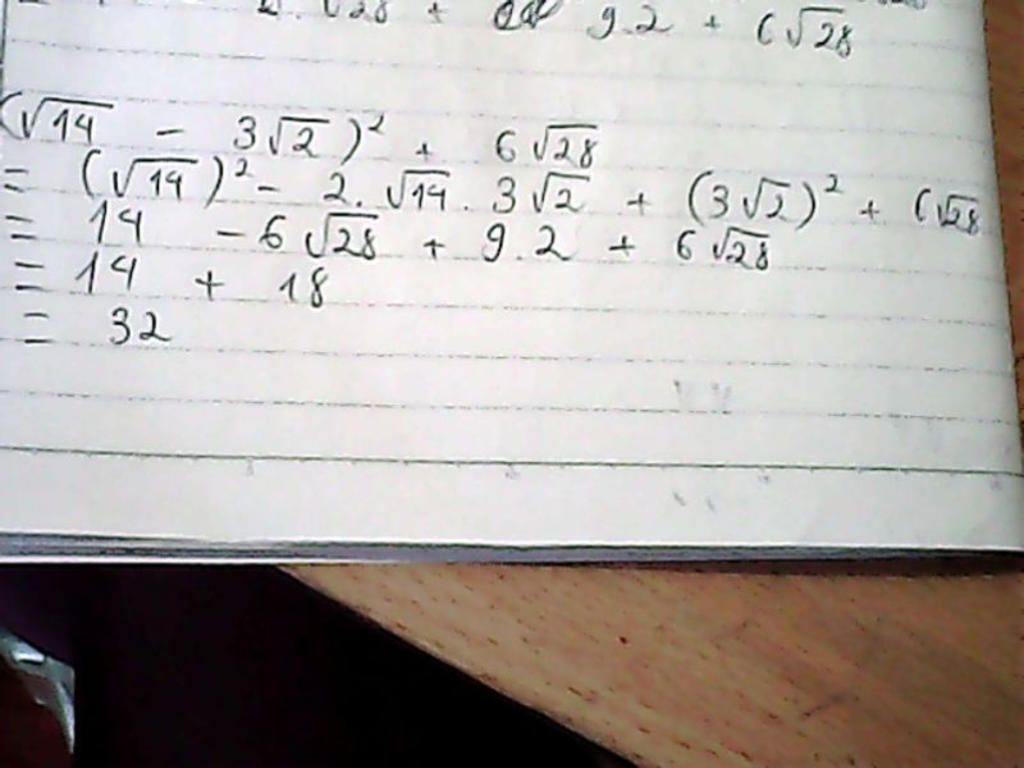 √28 + 9.2 + 6√28
(√14 - 3√2)² + 6√28
= (√14)² - 2.√14.3√2 + (3√2)² + 6√28
= 14 - 6√28 + 9.2 + 6√28
= 14 + 18
= 32